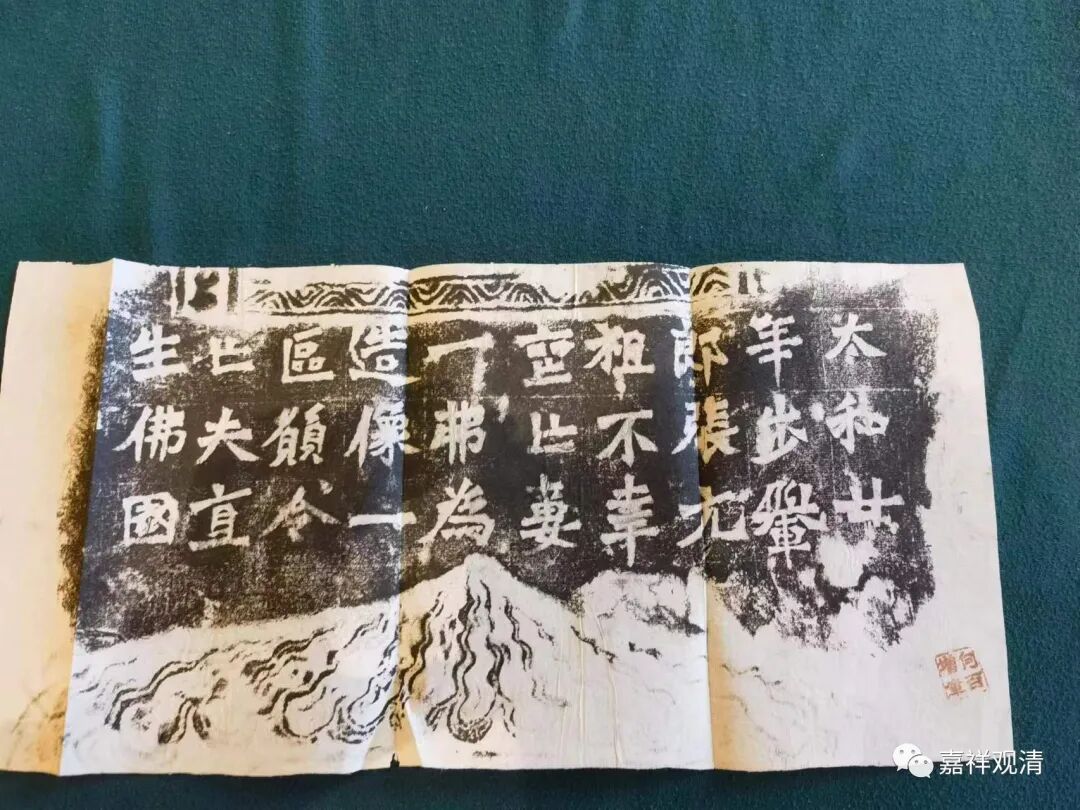 太和廿
年步轝
郎張元
祖不幸
喪亡妻
一弗為
造像一
區願令
亡夫直
生佛國
嘉祥观清